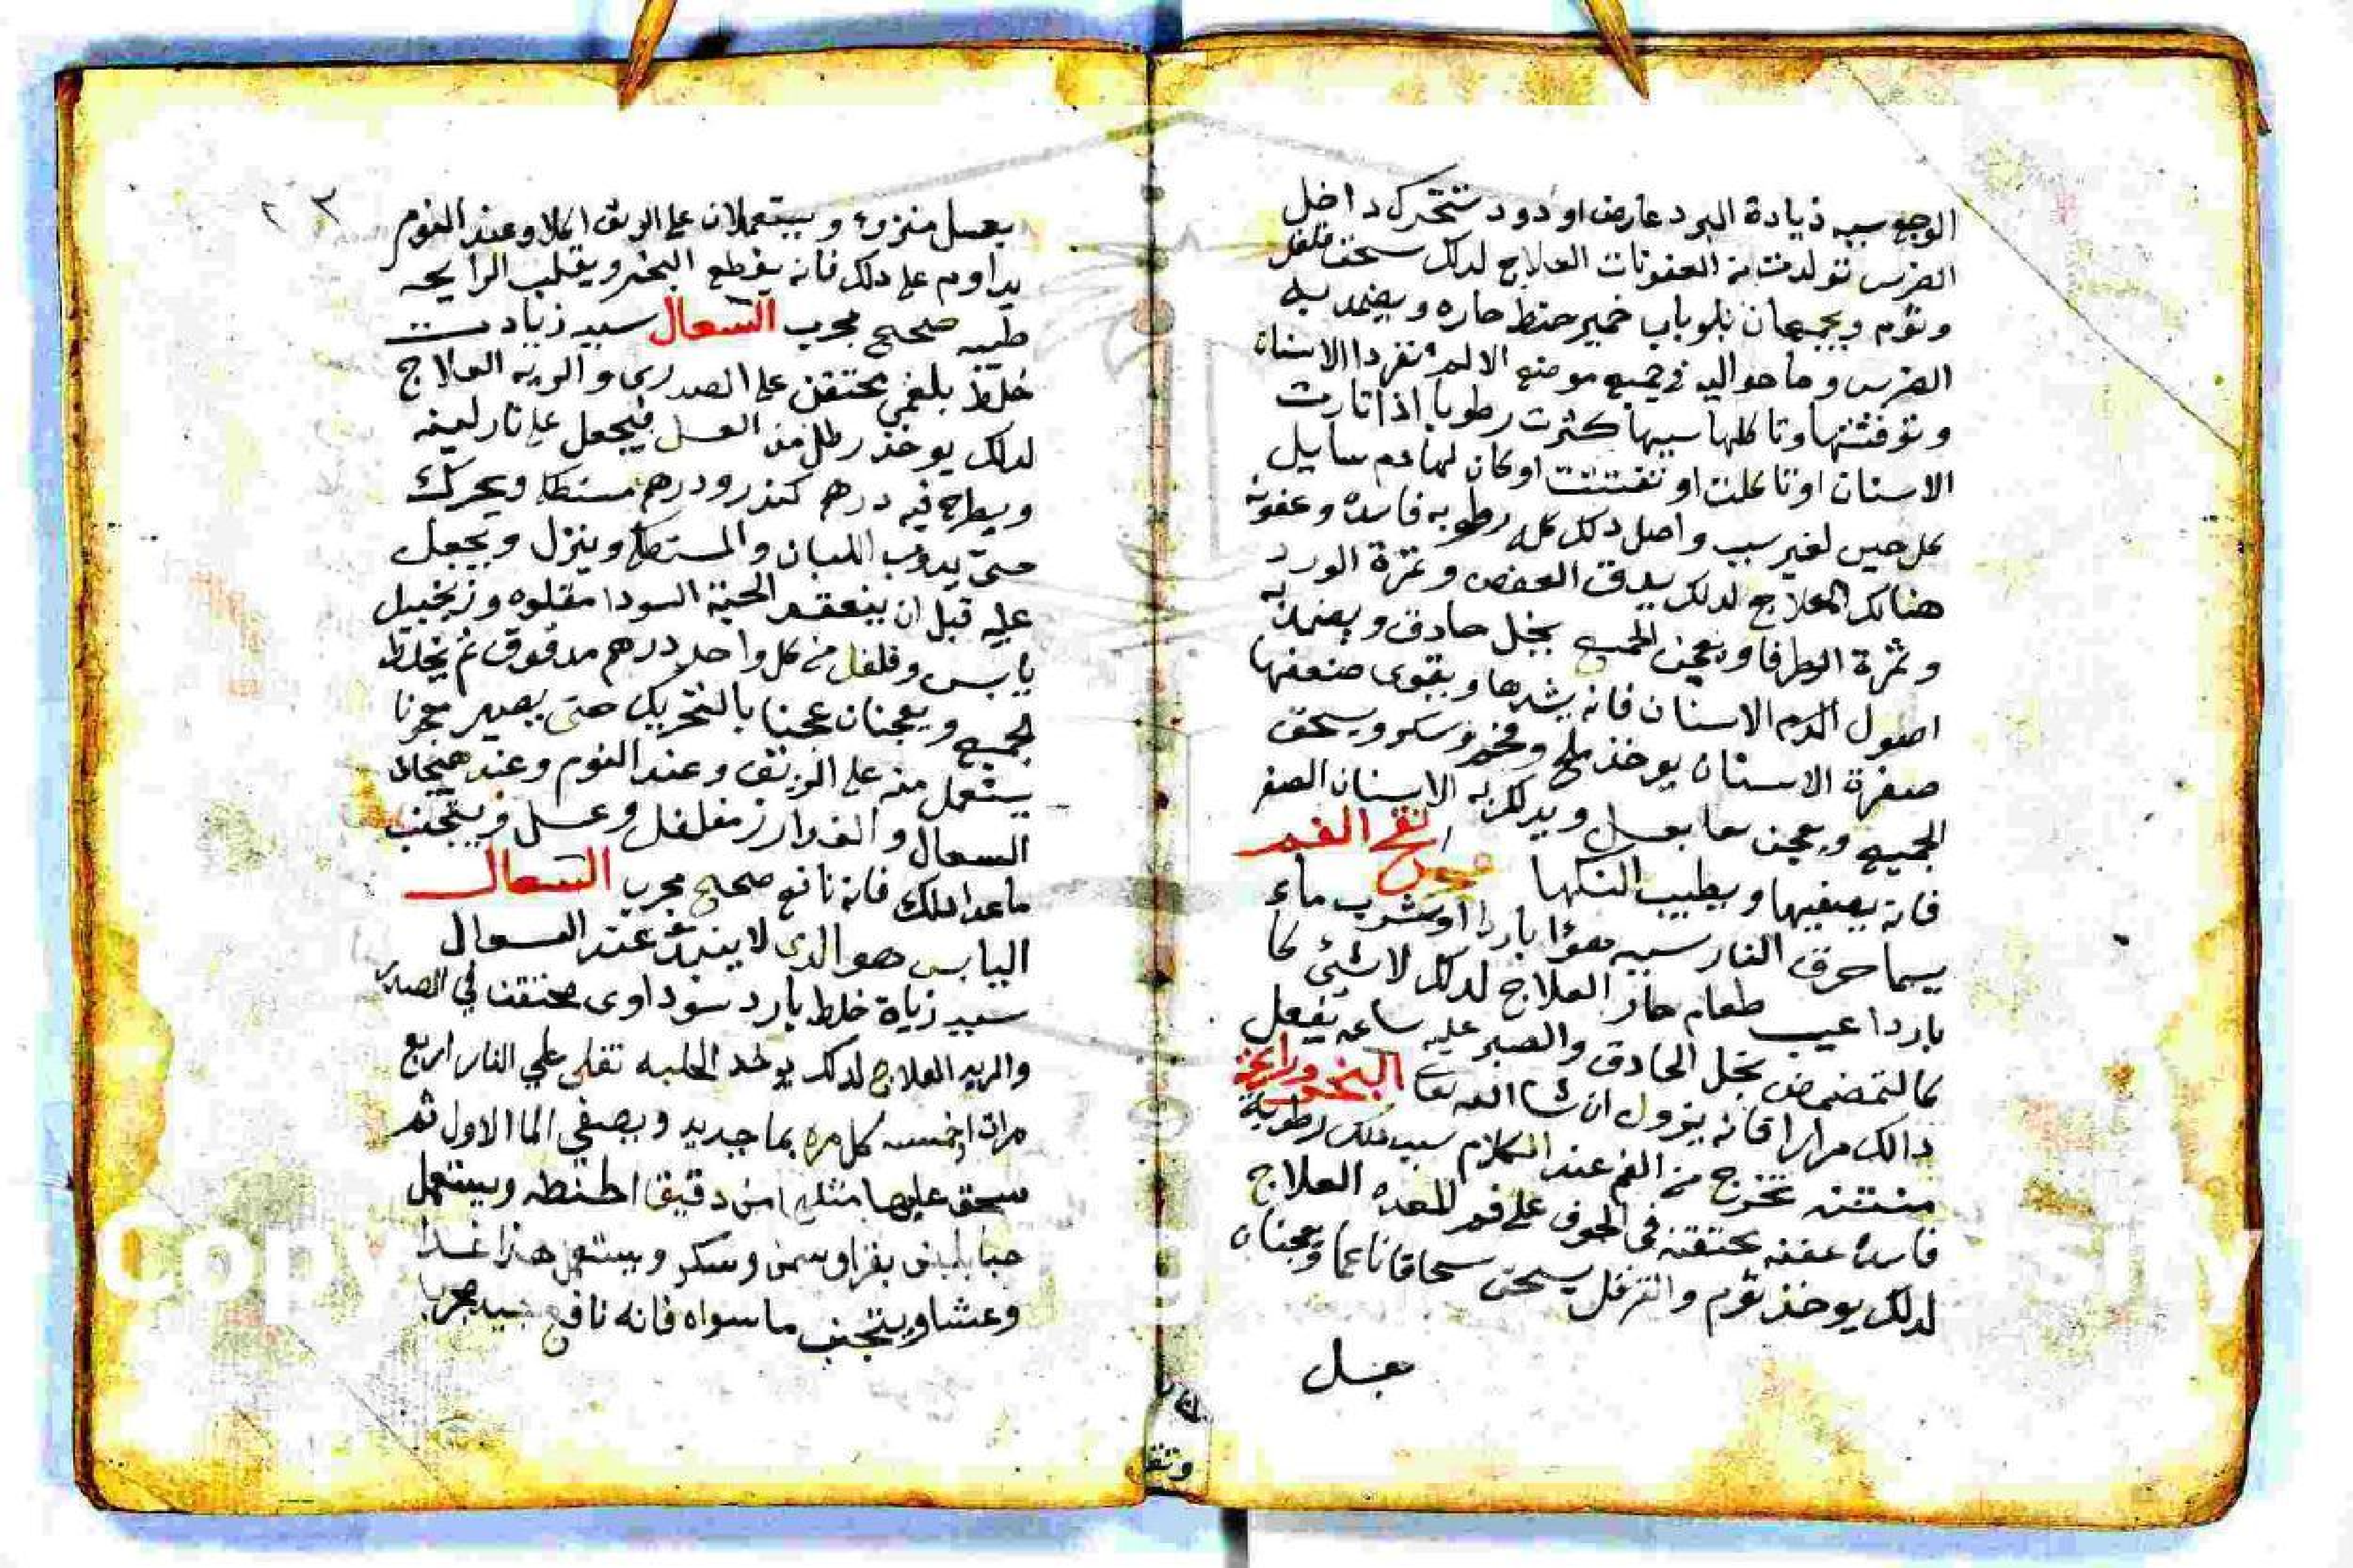 الوجع سببه زيادة البرد عارض او دود تتحرك داخل
الضرس تولدت من العفونات العلاج لدلك سحق فلفل
وثوم ويجمعان بلوباب خمير حنطه حاره ويضمد به
الضرس وما حواليه في جميع موضع الالم الاسنان
وتآكلها سببها كثرت رطوبا اذا تارت
الاسنان او تاكلت او تفتتت او كان لها دم سايل
كل حين لغير سبب واصل دلك كله رطوبه فاسده وعفونه
هنالك العلاج لدلك يدق العفص وثمرة الورد
وثمرة الطرفا ويعجن الجميع بخل حادق ويضمد به
اصول الاسنان فانه يشدها ويقوى ضعفها
صفرة الاسنان يوخد ملح وفحم وسكر ويسحق
الجميع ويعجن بعسل ويدلك به الاسنان الصفر
فانه يصفيها ويطيب النكها الفم
سببه هوا بارد او شرب ماء
باردا عيب طعام حار العلاج لدلك لاشئ كا
كالتمضمض بخل الحادق والصبر عليه ساعه يفعل
دالك مرارا فانه يزول ان شا الله تعا البخر ورايحة
منتنه تخرج من الفم عند الكلام سبب دلك رطوبة
فاسده عفنه محتقنه في الجوف على فم المعده العلاج
لدلك يوخذ ثوم والقرنفل يسحق سحاقا ناعما ويعجنان
بعسل
٢٣
بعسل منزوع ويستعملان على الريق اكلا وعند النوم
يداوم على دلك فانه يقطع البخر ويقلب الرايحه
طيبه صحيح مجرب السعال سببه زيادت
خلط بلغمي محتقن على الصدر والريه العلاج
لدلك يوخذ رطل من العسل فيجعل على نار لينه
ويطرح فيه درهم كندر ودرهم مستكا ويحرك
حتى يدوب اللبان والمستكا وينزل ويجعل
عليه قبل ان ينعقد الحبة السودا مقلوه وزنجبيل
يابس وفلفل من كل واحد درهم مدقوق ثم يخلط
الجميع ويعجنان عجنا بالتحريك حتى يصير معجونا
يستعمل منه على الريق وعند النوم وعند هيجان
السعال والغدا رز مفلفل وعسل ويتجنب
ماعدا دلك فانه نافع صحيح مجرب السعال
اليابس هو الذي لا عند السعال
سببه زياة خلط بارد سوداوى محتقن في الصدر
والريه العلاج لدلك يوخد الحلبه تغلى على النار اربع
مرات او خمسه كل مره بما جديد ويصفي الما الاول ثم
يسحق عليها مثليها من دقيق الحنطه ويستعمل
بلبن بقر او سمن وسكر ويستعمل هذا غدا
وعشا ويتجنب ما سواه فانه نافع جيد مجرب